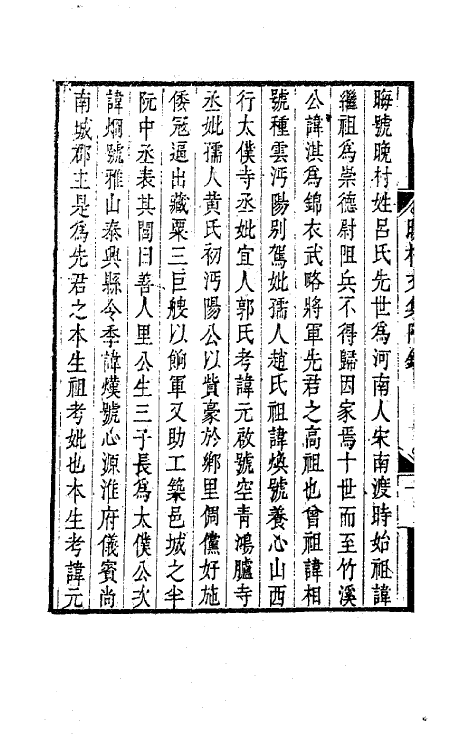 晦號晚村姓呂氏先世爲河南人宋南渡時始祖諱
繼祖爲崇德尉阻兵不得歸因家焉十世而至竹溪
公諱淇爲錦衣武略將軍先君之高祖也曾祖諱相
號種雲沔陽别駕妣孺人趙氏祖諱煥號養心山西
行太僕寺丞妣宜人郭氏考諱元啟號空青鴻臚寺
丞妣孺人黄氏初沔陽公以貲豪於鄉里倜儻好施
倭冦逼出藏粟三巨艘以餉軍又助工築邑城之半
阮中丞表其閭曰善人里公生三子長爲太僕公次
諱烱號雅山泰興縣令季諱熯號心源淮府儀賓尚
南城郡主是爲先君之本生祖考妣也本生考諱元